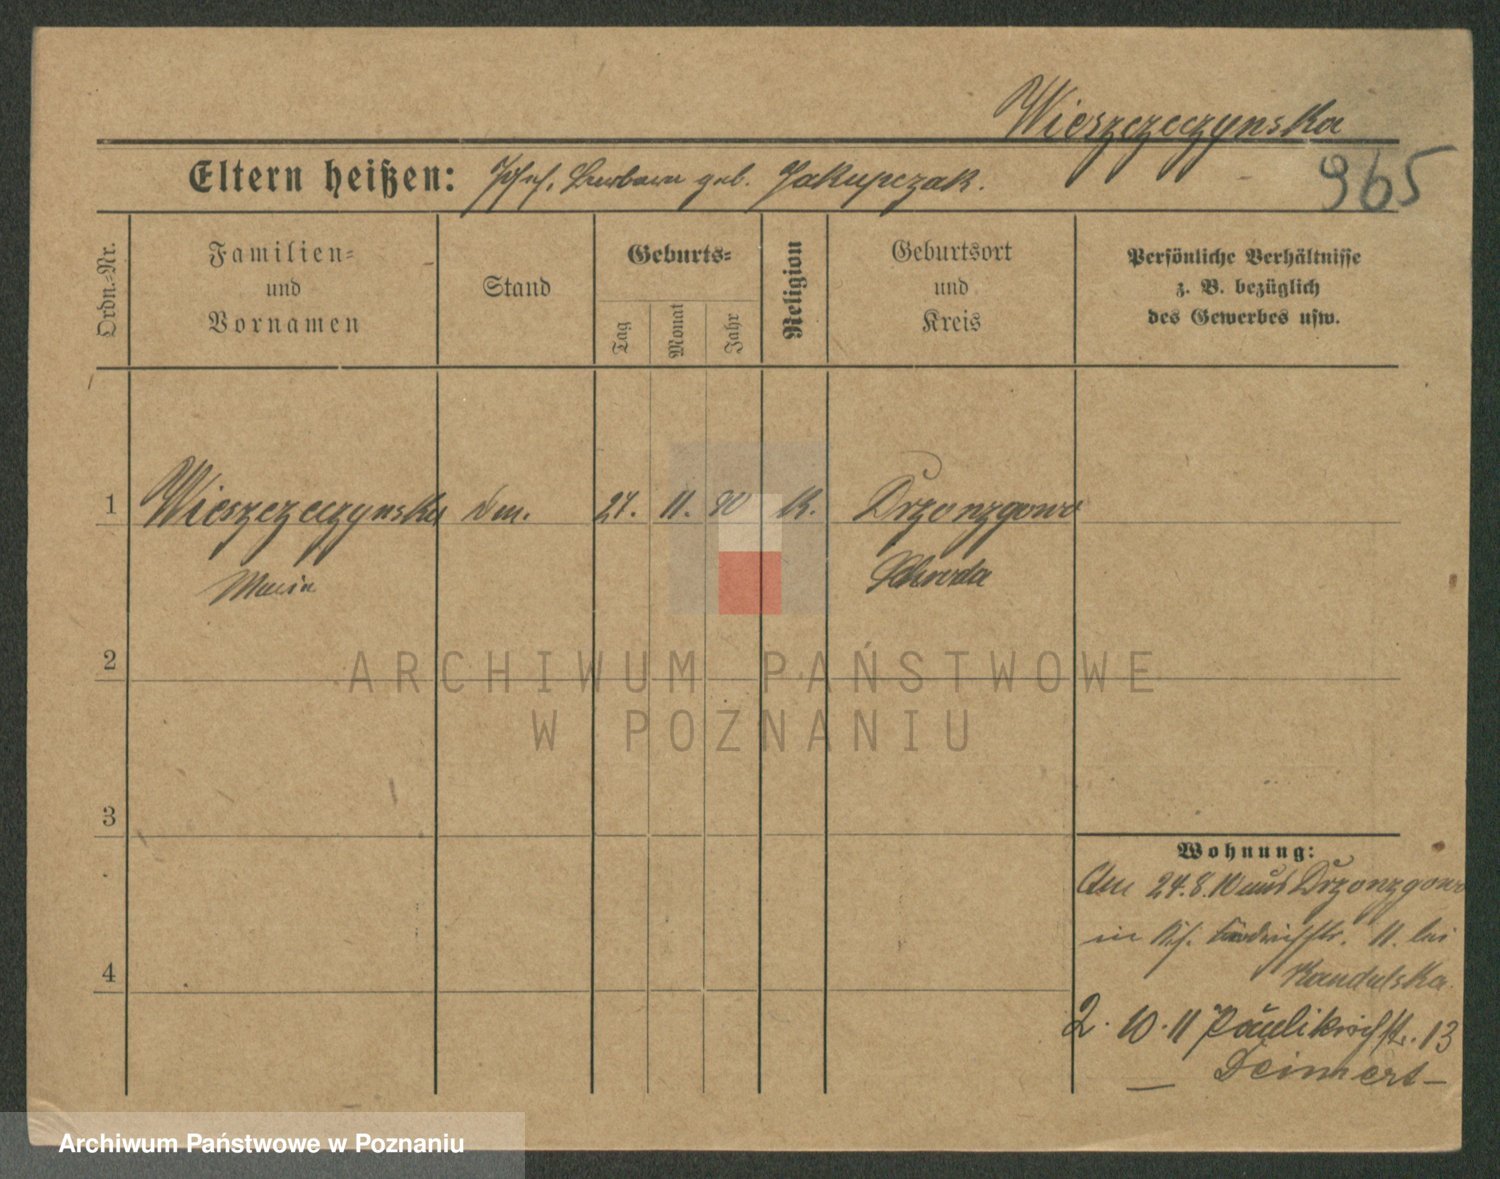 Wieszczeczynska
965
Eltern heißen: Josef, Barbara geb. Jakupczak.
Ordn.-Nr.
Familien-
und
Vornamen
Stand
Geburts-
Tag
Monat
Jahr
Religion
Geburtsort
und
Kreis
Persönliche Verhältnisse
z. B. bezüglich
des Gewerbes usw.
1 Wieszczeczynska 11. 90 K. Drzonzgowo
Maria Schroda
2
ARCHIWUM PAŃSTWOWE
W POZNANIU
3
Wohnung:
24.8.10 aus Drzonzgowo
in 11. bei
Kandulska
4
2. 10. 11 Paulikirchstr. 13
Deimert
Archiwum Państwowe w Poznaniu